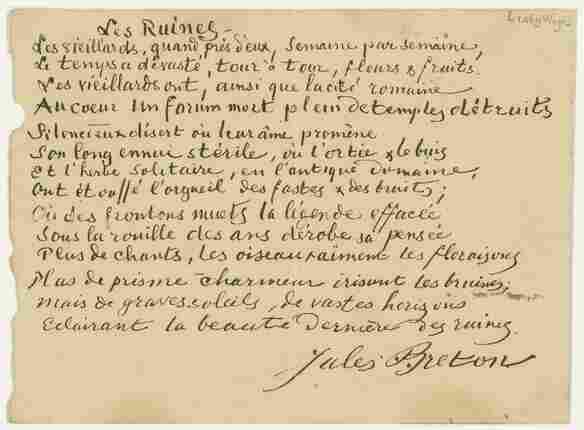 Les Ruines
Les vieillards, quand près d'eux, semaine par semaine,
Le temps a dévasté, tour à tour, fleurs & fruits.
Les vieillards ont, ainsi que la cité romaine
Au coeur un forum mort plein de temples détruits
Silencieux désert où leur âme promène
Son long ennui stérile, où l'ortie & le buis
Et l'herbe solitaire, en l'antique domaine,
Ont étouffé l'orgueil des fastes & des bruits;
Où des frontons muets la légende effacée
Sous la rouille des ans dérobe sa pensée
Plus de chants, les oiseaux aiment les floraisons
Plus de prisme charmeur irisant les bruines;
Mais de graves soleils, de vastes horizons
Eclairant la beauté Dernière des ruines.
Jules Breton